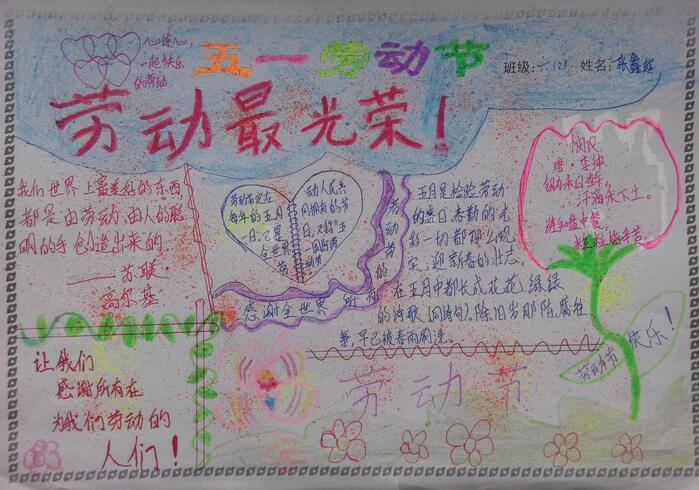 心连心，
一起快乐
的劳动
五一劳动节
班级：六(2) 姓名：张鑫
劳动最光荣！
我们世界上最美好的东西
都是由劳动、由人的聪
明的手创造出来的
——苏联·
高尔基
劳动节定在
每年的五月
一日。它是
全世界
劳动人民共
同拥有的节
日，又称"五
一国际劳
动节
感谢全世界所有的劳动节
五月是检验劳动
的盛日
春勤的光
一切都那么现
实，迎新春的壮志
在五月中都长成花花、绿绿
的诗歌(同诗句)。陈旧当那陈腐往
事，早已被春雨刷洗。
悯农
唐 李绅
锄禾日当午，
汗滴禾下土。
谁知盘中餐，
粒粒皆辛苦。
让我们
感谢所有在
为我们劳动的
人们！
劳动节
劳动节
快乐！